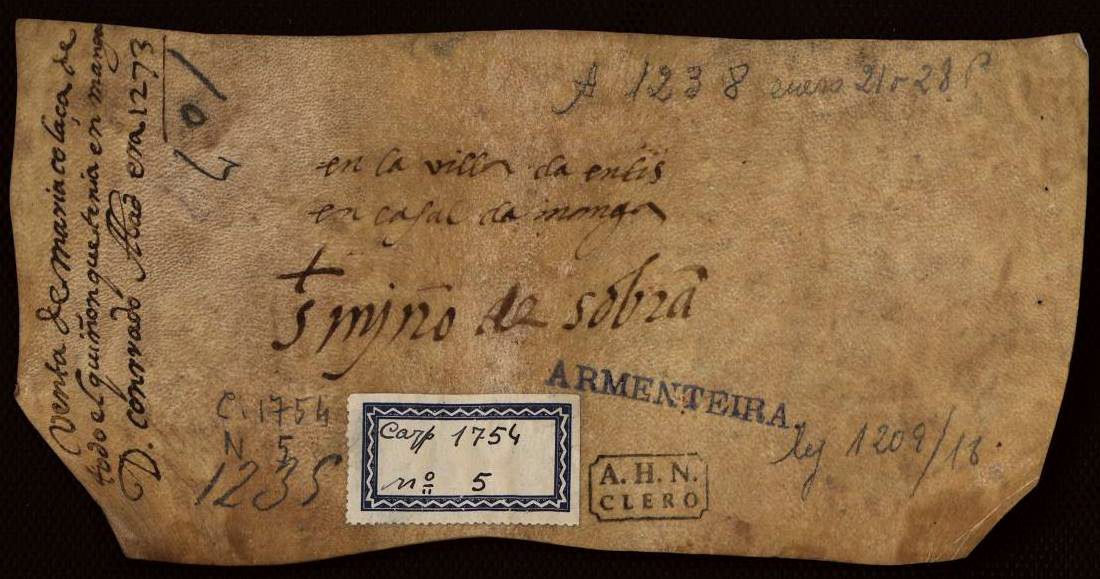 Venta de maria colaça de
todo el quiñon que tenia en manga
D. conrrado Abad era 1273
A 1238 enero 21 o 28
en la villa da entis
en casal da monga
+
s mjño de sobrã
ARMENTEIRA.
C. 1754
N 5
1235
Carp 1754
nº 5
A. H. N.
CLERO
leg 1209/18.